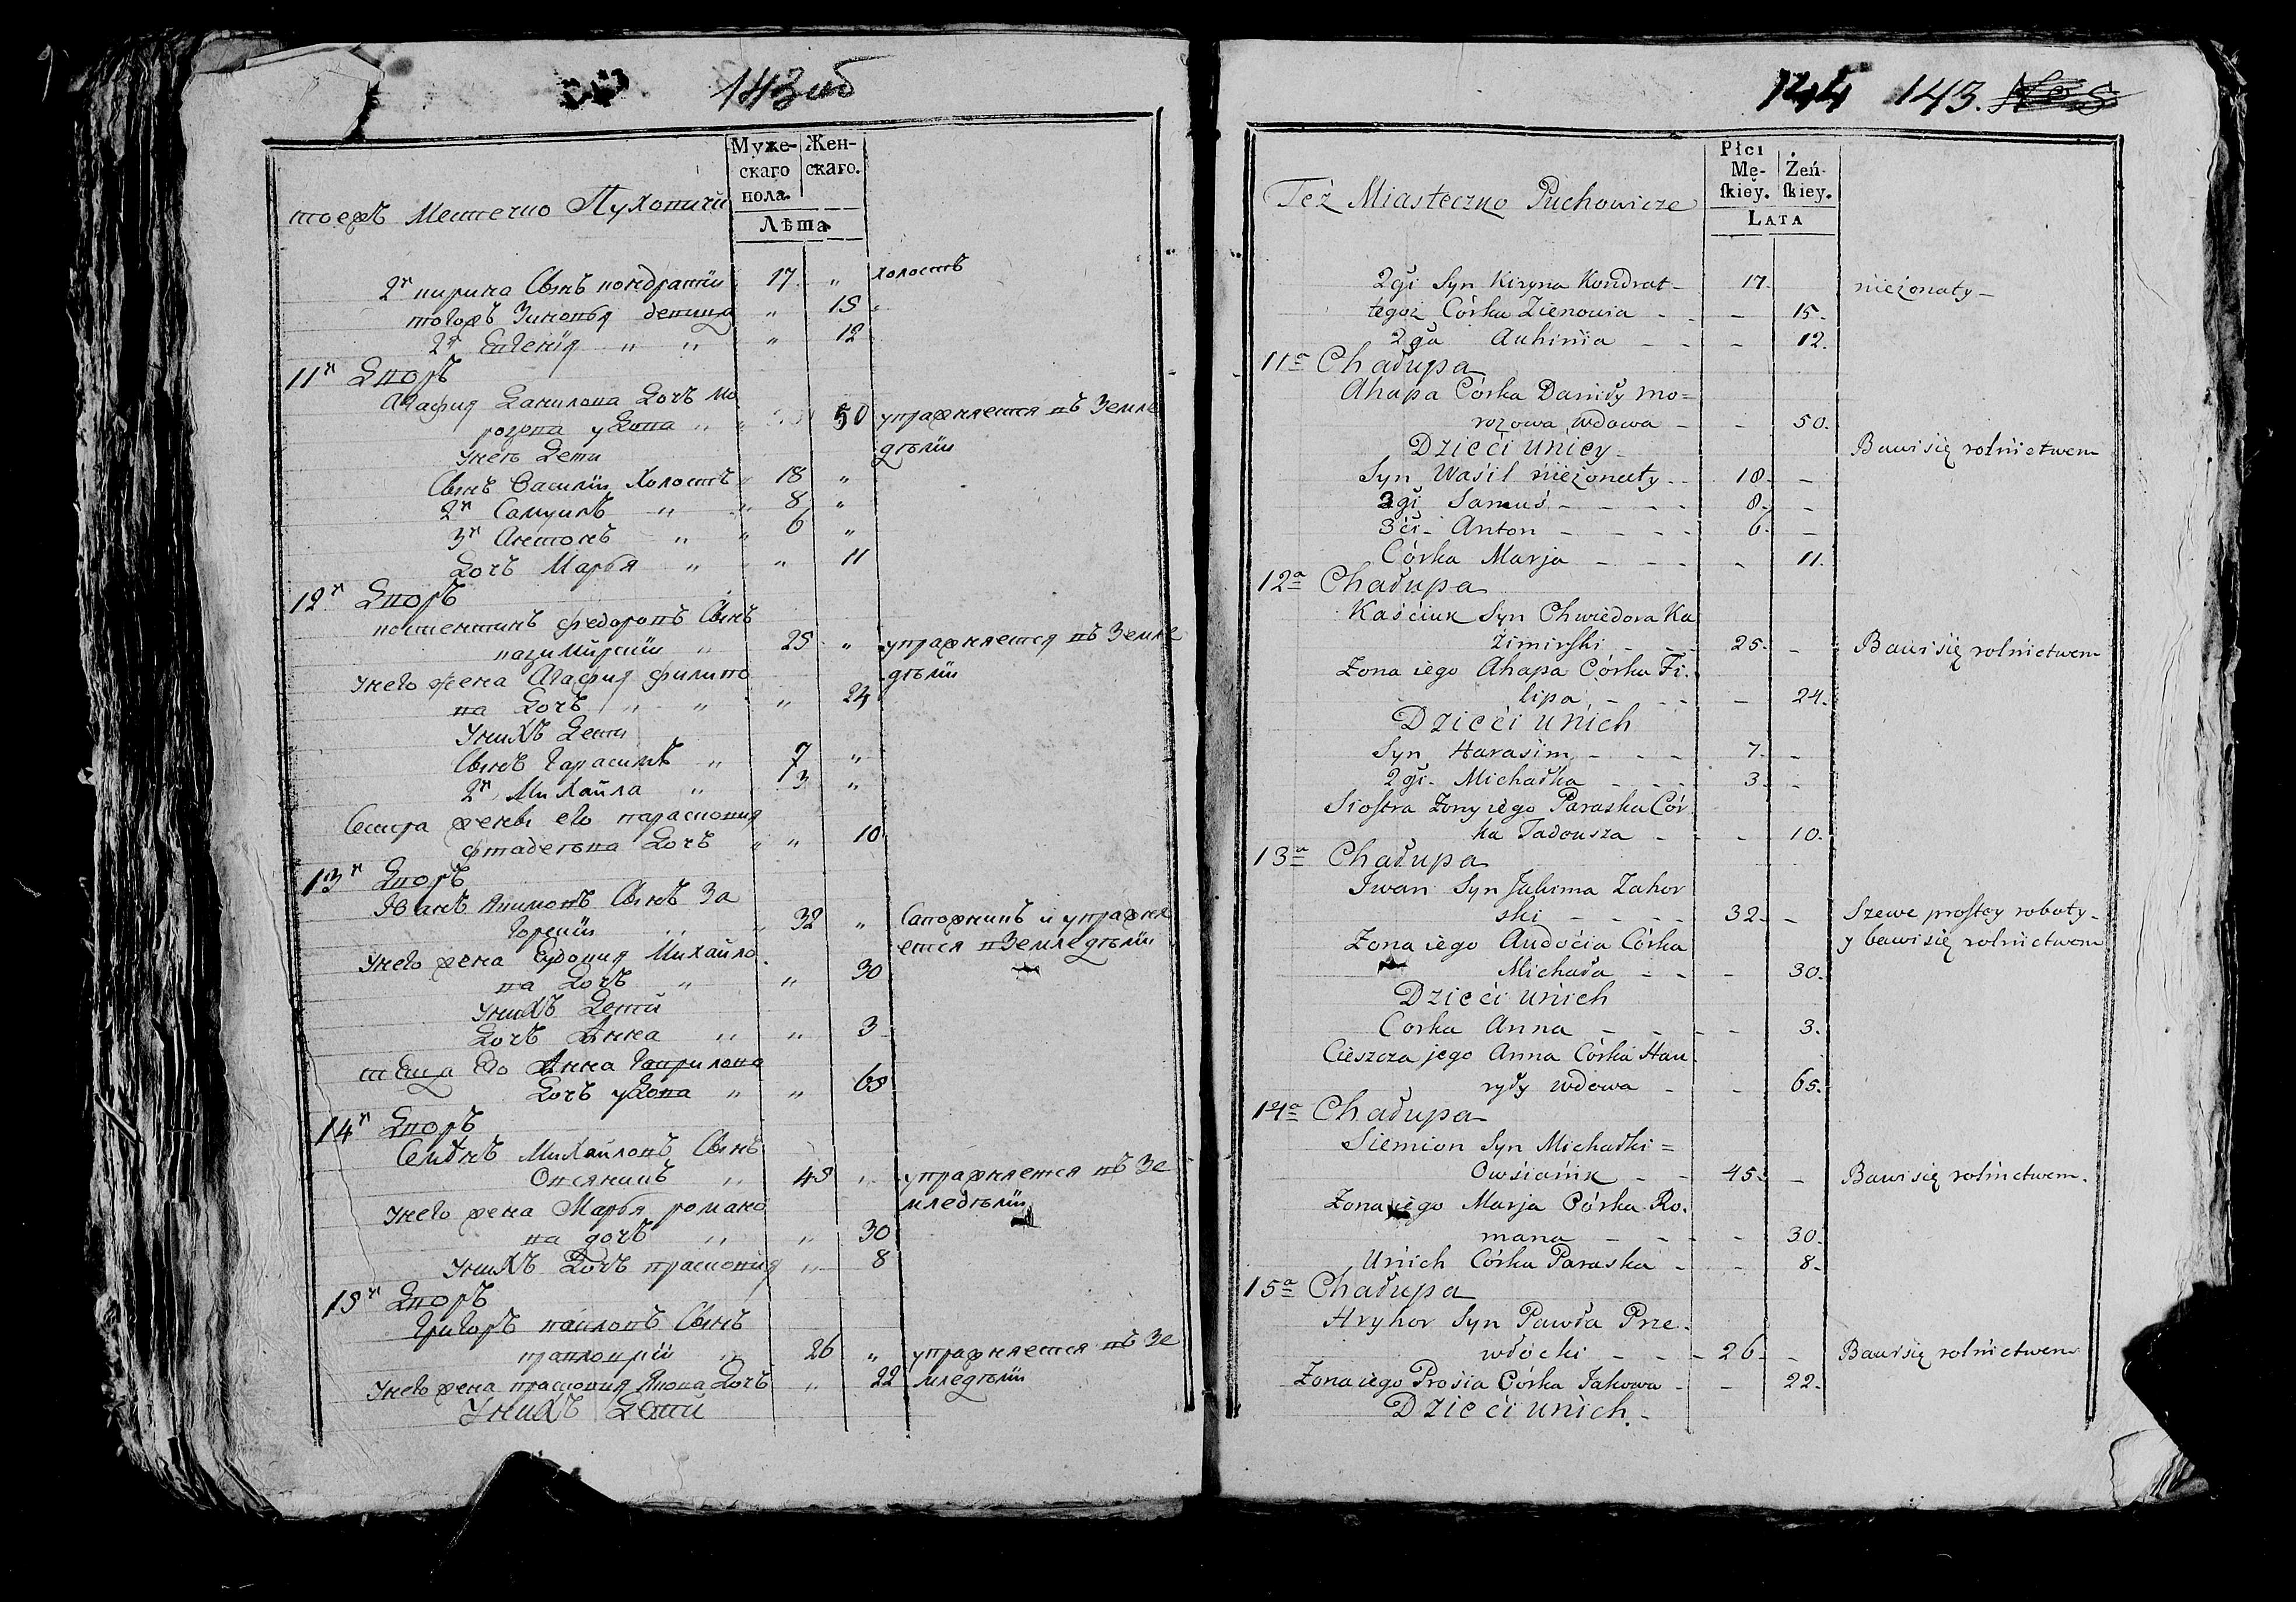 143 об
Муже-
скаго
пола.
Жен-
скаго.
Лѣта
тоежъ Местечко Пуховичи
2й кирика Сынъ кондратiи 17 „ холостъ
тогожъ Зиновья девица „ 15 „
2я Евгенiя „ „ „ 12
11й Дворъ
Агафия Данилова Дочъ мо
розова удова „ „ 50 упражняется въ Земле
Унего Дети дѣлiи
Сынъ Василiи Холостъ „ 18 „
2й Самуилъ „ „ 8 „
3й Антонъ „ „ 6 „
Дочъ Марья „ „ 11
12й Дворъ
костентинъ федоровъ Сынъ
казимирскiи „ 25 „ упражняется въ Земле
Унего жена Агафия филипо дѣлiи
ва Дочъ „ „ „ 24
Унихъ Дети
Сынъ Гарасимъ „ 7 „
2й Михайла „ 3 „
Сестра жены его парасковия
фтадеевна Дочъ „ „ 10
13й Дворъ
Иванъ якимовъ Сынъ За
горскiи „ „ 32 „ Сапожникъ и упражня
Унего жена Еудокия Михайло ется вЗемледѣлiи
ва Дочъ „ „ 30
Унихъ Дети
Дочъ Анна „ „ 3
тёща его Анна Гаврилова
Дочъ удова „ „ 65
14й Дворъ
Семёнъ Михайловъ Сынъ
Овсяникъ „ 45 „ упражняется въ Зе
Унего жена Марья романо мледѣлiи
ва дочъ „ „ 30
Унихъ Дочъ прасковия „ 8
15й Дворъ
Григоръ павловъ Сынъ
правлоцкiй „ 26 „ упражняется въ Зе
Унего жена прасковия якова Дочъ „ 22 мледѣлiи
Унихъ Дети
144 143.
Płci
Mę-
ſkiey.
Żeń-
ſkiey.
LATA
Też Miasteczko Puchowicze
2gi Syn Kiryna Kondrat - 17. nieżonaty -
tegoż Córka Zienowia - - - 15.
2ga Auhinia - - - 12.
11a Chałupa
Ahapa Córka Daniły mo=
rozowa wdowa - - 50.
Dzieći unicy - Bawi się rolnictwem
Syn Waśil nieżonaty - - 18. -
2gi Samuś - - - - 8. -
3ći - Anton - - - - 6. -
Córka Marja - - - - 11.
12a Chałupa
Kaśćiuk Syn Chwiedora Ka
zimirſki - - - 25. - Bawi się rolnictwem
Żona iego Ahapa Córka Fi.
lipa - - - - 24.
Dzieći unich
Syn Harasim - - - 7. -
2gi - Michałka - - - 3. -
Sioſtra Żony iego Paraska Cór
ka Tadousza - - 10.
13a Chałupa
Iwan Syn Jakima Zahor
ski - - - - 32. - Szewc proſtey roboty -
Żona iego Audoćia Córka y bawi się rolnictwem
Michała - - - 30.
Dzieći unich
Corka Anna - - - - 3.
Cieszcza jego Anna Córka Hau
ryły wdowa - - 65.
14a Chałupa
Siemion Syn Michałki =
Owśianik - - 45. - Bawi się rolnictwem.
Żona iego Marja Córka Ro.
mana - - - - 30.
Unich Córka Paraska - - 8.
15a Chałupa
Hryhor Syn Pawła Prze.
włocki - - - 26. - Bawi się rolnictwem
Żona iego Prośia Córka Jakowa - - 22.
Dzieći unich. -